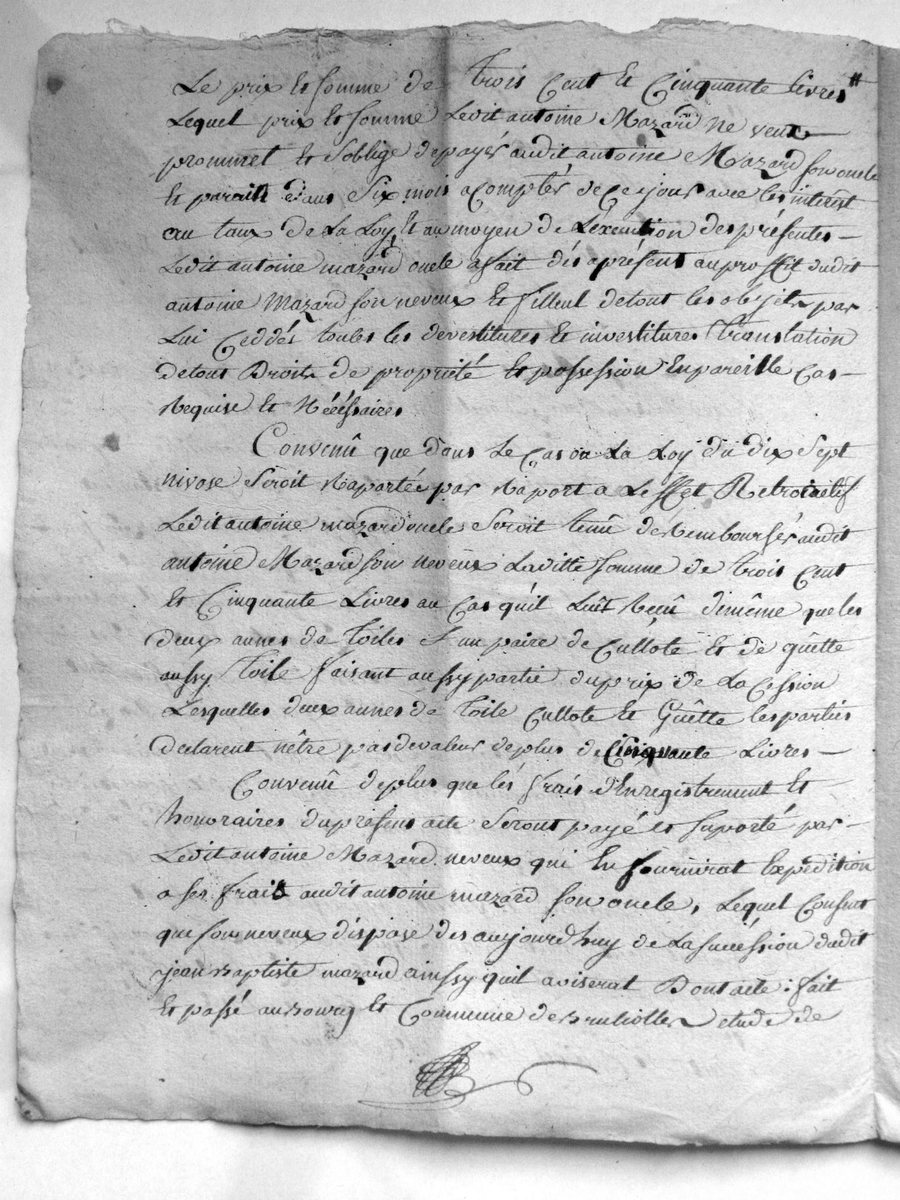 Le prix et somme de trois Cent et Cinquante livres"
Lequel prix et somme Ledit antoine Mazard ne veux
prommet et soblige de payér audit antoine Mazard son oncle
et parain dans Six mois a comptér de ce jour avec les interest
au taux de La Loy, et au moyen de Lexecution des présentes -
Ledit antoine mazard oncle a fait dés aprésent au proffit dudit
antoine Mazard son neveux et filleul de tout les objéts par
Lui Ceddés toutes les devestitures et investitures Translation
de tous Droits de propriété et possession En pareille Cas -
Requise et Nécéssaires
Convenû que dans Le Cas ou La Loy du dix Sept
nivose Seroit Raportée par Raport a Leffet Retroactif
Ledit antoine mazard oncle Seroit tenû de Rembourser audit
antoine Mazard son neveux Laditte somme de trois Cent
et Cinquante Livres au Cas qu'il Luit Reçû dimême que les
deux aunes de toiles et un paire de Cullote et de guêtte
aussy toile faisant aussy partie du prix de La Cession
Lesquelles deux aunes de toile Cullote et Guêtte les parties
declarent nêtre pas de valeur de plus de Cinquante Livres -
Convenû de plus que lés frais d'Enregistrement et
honoraires du présent acte Seront payé et suporté par -
Ledit antoine Mazard neveux qui En fournirat Expédition
a ses frais audit antoine mazard son oncle, Lequel Consent
que son neveux dispose des aujourdhuy de La succéssion dudit
jean Baptiste mazard ainssy quil aviserat Dont acte : fait
et passé au bourg et Commune de brulliolles etude de